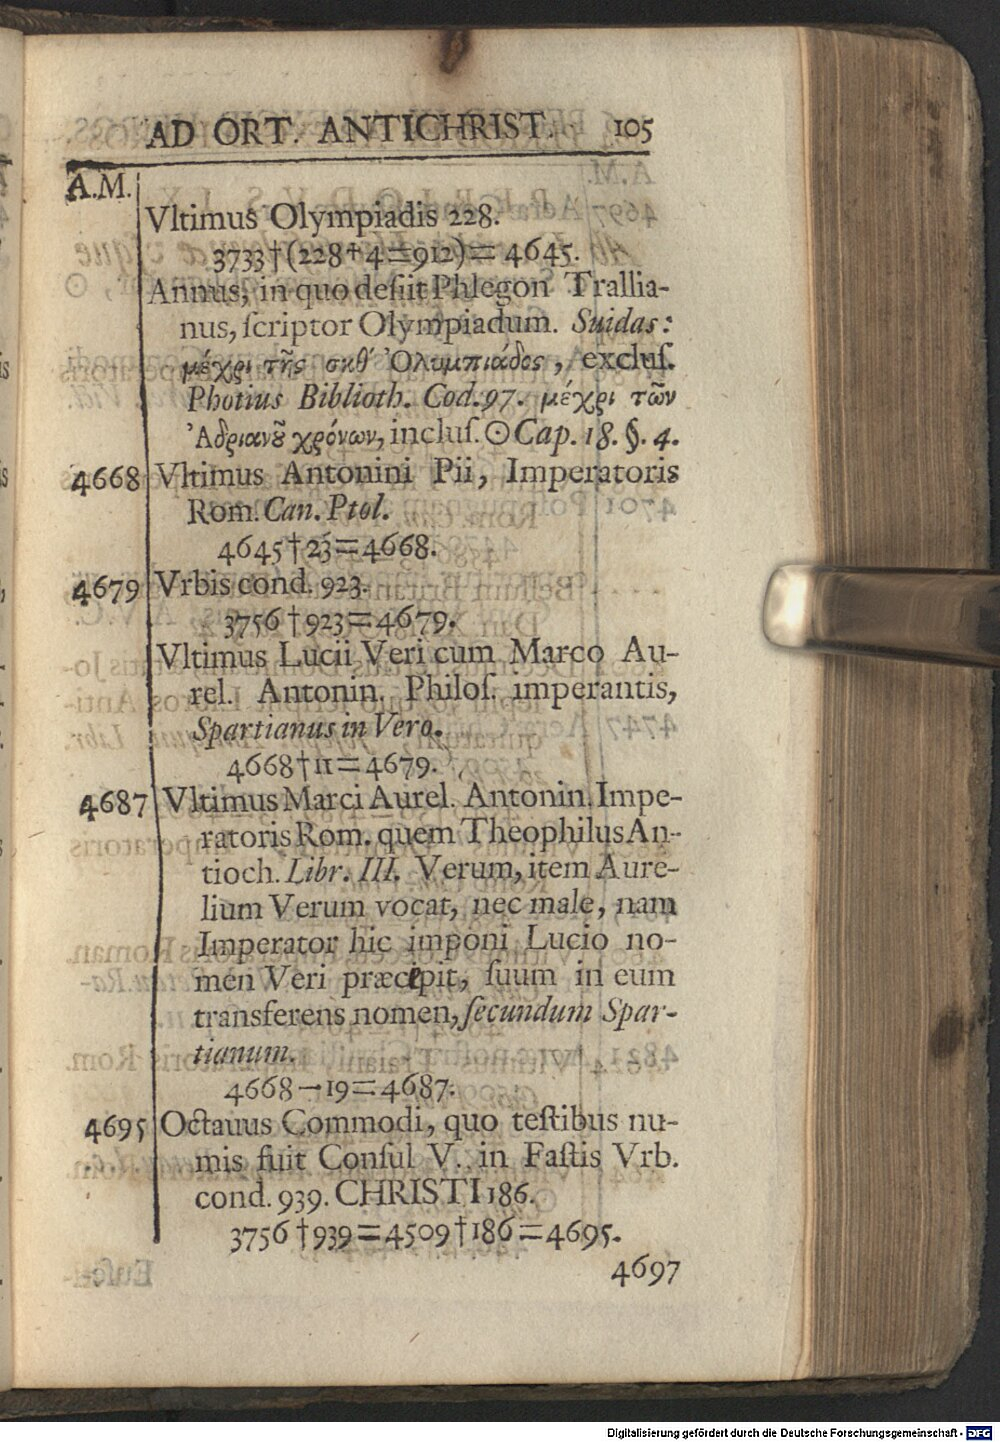 AD ORT. ANTICHRIST. 105
A.M.
Vltimus Olympiadis 228.
3733†(228+4=912)=4645.
Annus, in quo desiit Phlegon Trallia-
nus, ſcriptor Olympiadum. Suidas:
μέχρι τῆς σκθ' Ὀλυμπιάδος, excluſ.
Photius Biblioth. Cod. 97. μέχρι τῶν
Ἀδριανȣ͂ χρόνων, incluſ. ☉ Cap. 18. §. 4.
4668 Vltimus Antonini Pii, Imperatoris
Rom. Can. Ptol.
4645†23=4668.
4679 Vrbis cond. 923.
3756†923=4679.
Vltimus Lucii Veri cum Marco Au-
rel. Antonin. Philoſ. imperantis,
Spartianus in Vero.
4668†11=4679.
4687 Vltimus Marci Aurel. Antonin. Impe-
ratoris Rom. quem Theophilus An-
tioch. Libr. III. Verum, item Aure-
lium Verum vocat, nec male, nam
Imperator hic imponi Lucio no-
men Veri præcepit, ſuum in eum
transferens nomen, ſecundum Spar-
tianum.
4668—19=4687.
4695 Octauus Commodi, quo teſtibus nu-
mis fuit Conſul V. in Faſtis Vrb.
cond. 939. CHRISTI 186.
3756†939=4509†186=4695.
4697
Digitalisierung gefördert durch die Deutsche Forschungsgemeinschaft - DFG